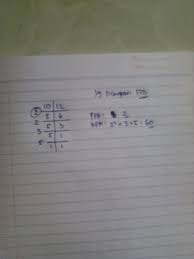 10 12
2 5 6
2 5 3
3 5 1
5 1 1
yg FPB
FPB: 2
KPK: 2² × 3 × 5 = 60